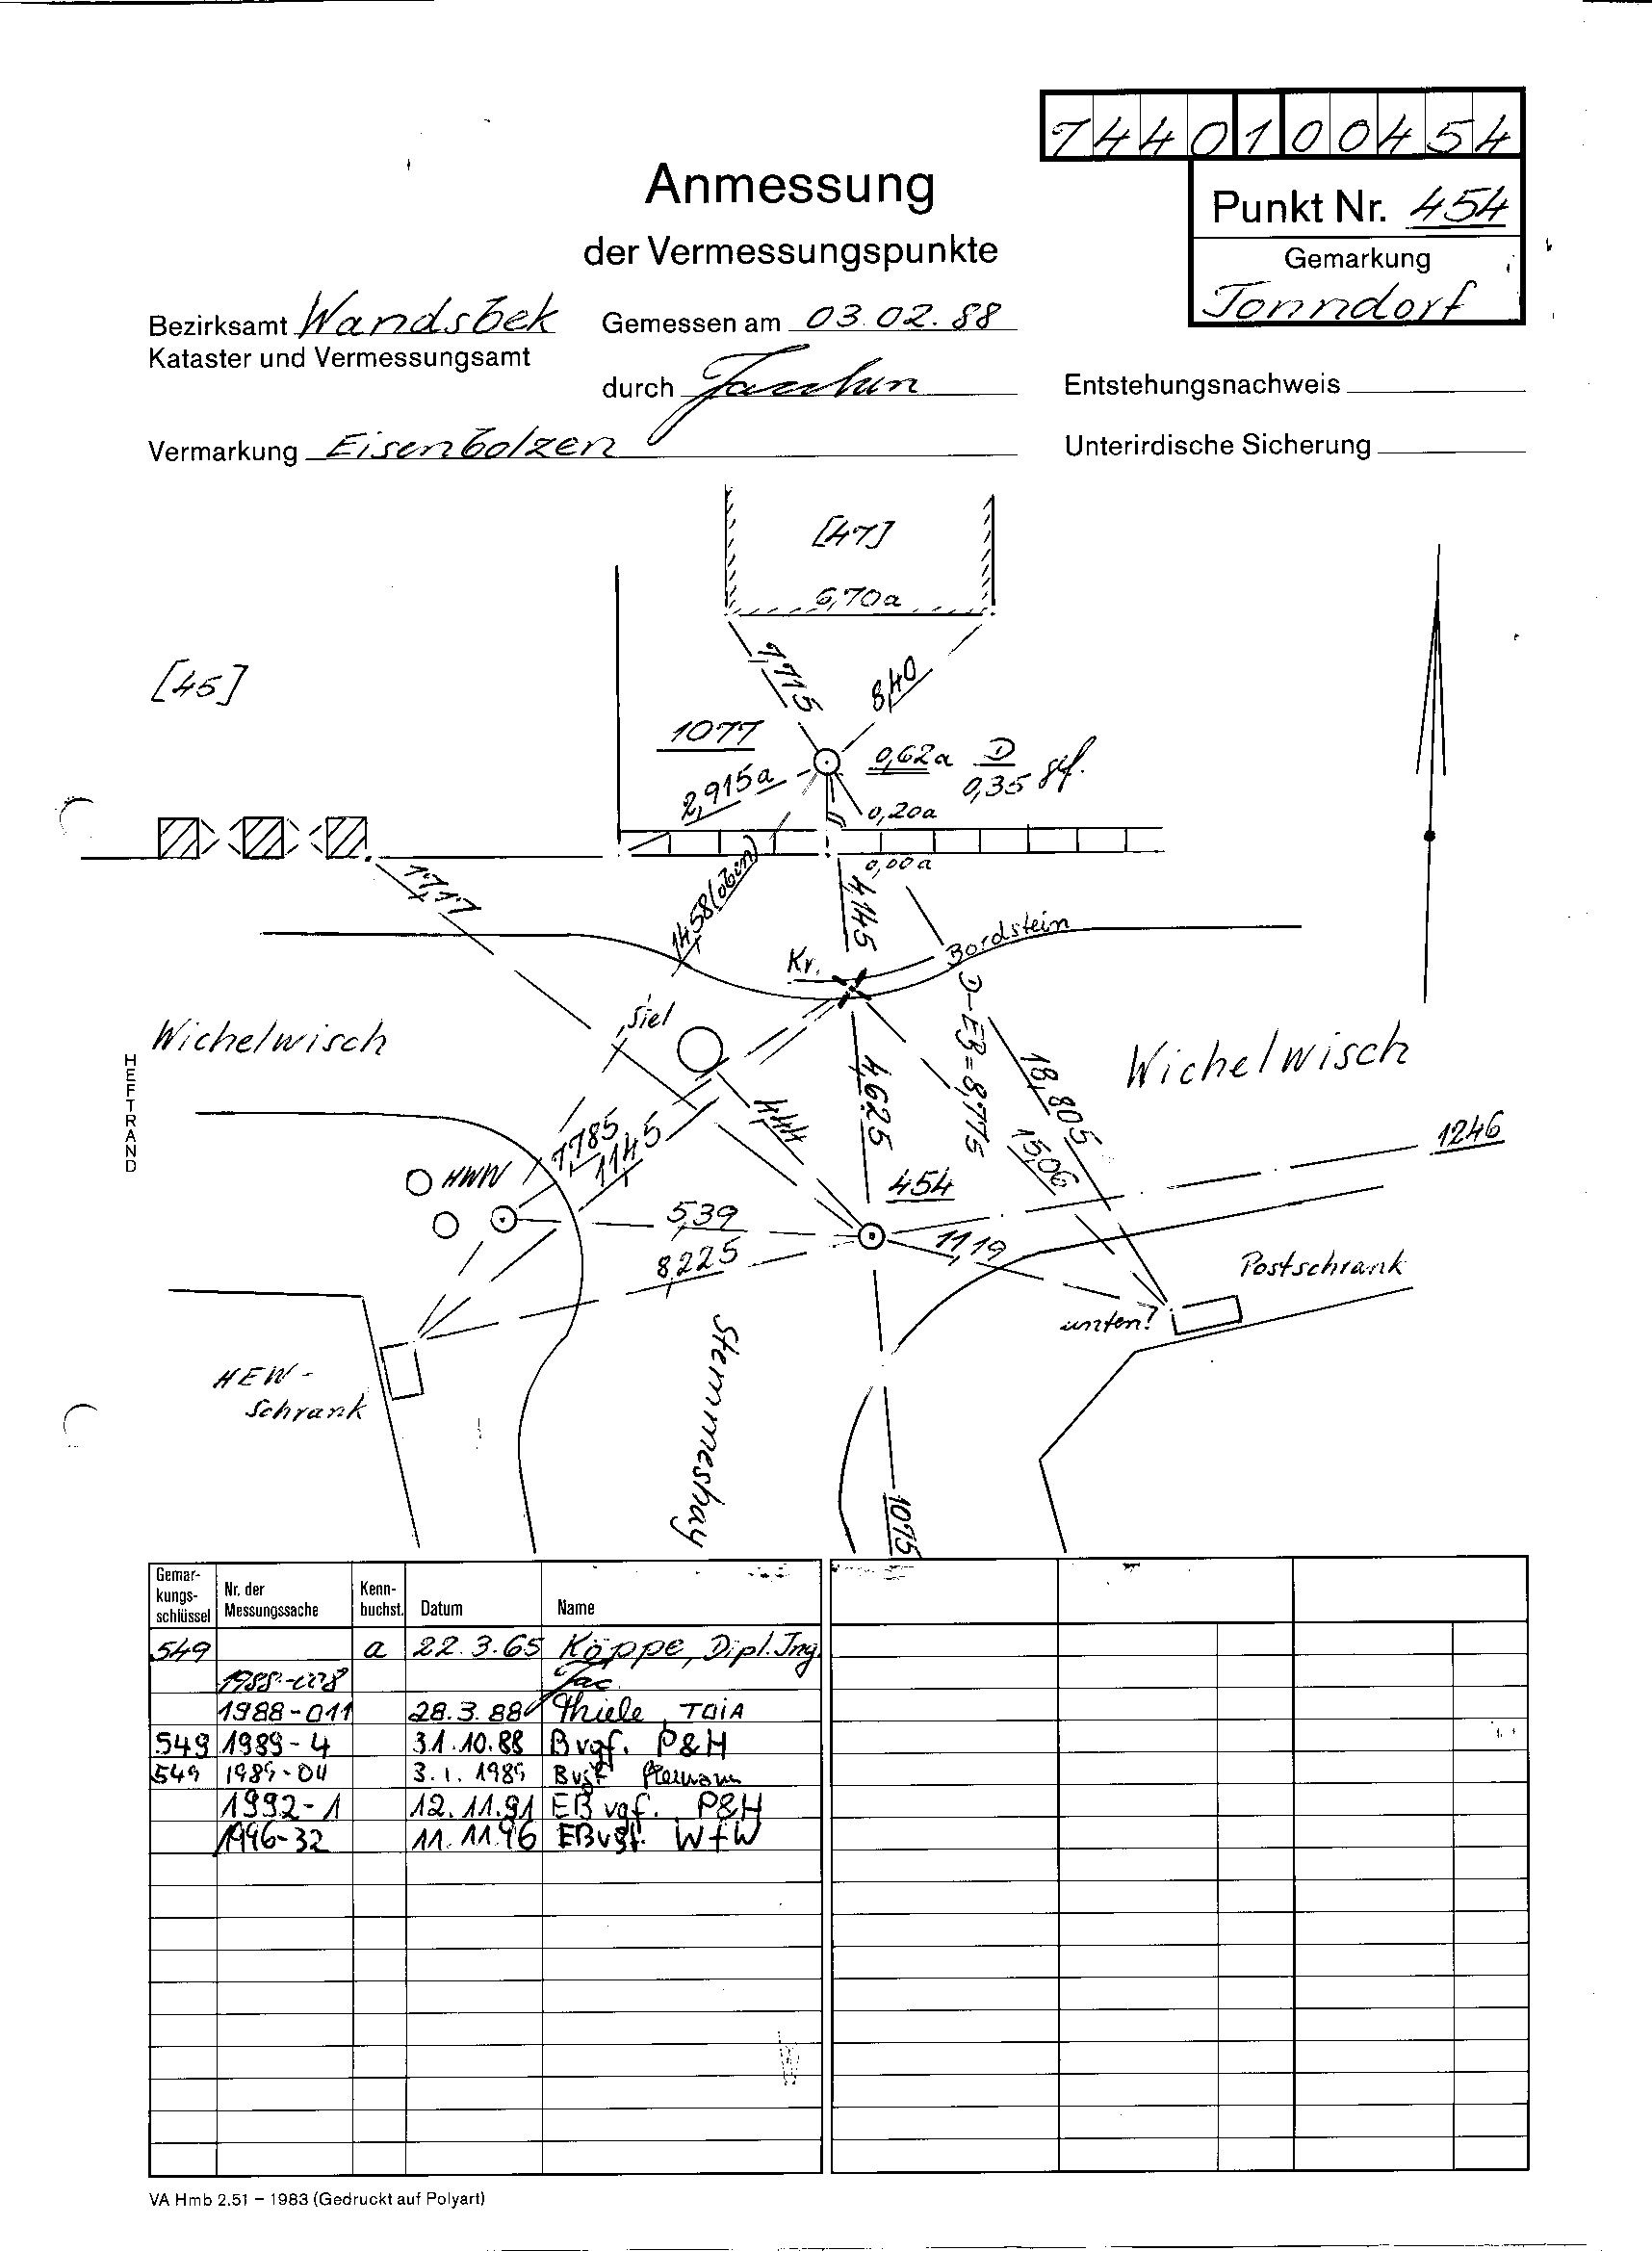 7440100454
Anmessung
der Vermessungspunkte
Punkt Nr. 454
Gemarkung
Tonndorf
Bezirksamt Wandsbek
Kataster und Vermessungsamt
Gemessen am 03.02.88
durch
Entstehungsnachweis
Vermarkung Eisenbolzen
Unterirdische Sicherung
[47]
6,70a
[45]
7,715
8,40
1077
2,915a
0,62a D
0,35 gef.
0,20a
0,00a
17,17
14,58 (oben)
4,145
Kr.
Bordstein
Siel
Wichelwisch
Wichelwisch
HEFTRAND
D-EB=8,775
18,805
15,06
4,625
4,44
7,785
11,45
1246
HWW
454
5,39
8,225
11,19
Postschrank
unten?
HEW-
Schrank
Stemmeshay
1075
Gemar-
kungs-
schlüssel
Nr. der
Messungssache
Kenn-
buchst.
Datum
Name
549 a 22.3.65 Köppe, Dipl.Ing.
Jac
1988-011 28.3.88 Thiele, TOIA
549 1989-4 31.10.88 Bvgf. P&H
549 1989-04 3.1.1989 Bvgf
1992-1 12.11.91 EBvgf. P&H
1996-32 11.11.96 EBvgf. WfW
VA Hmb 2.51 – 1983 (Gedruckt auf Polyart)